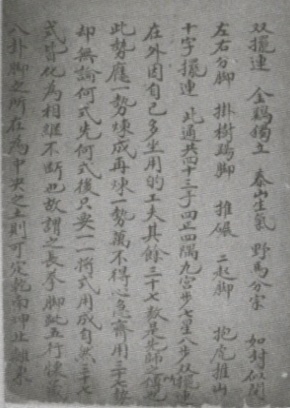 双擺連 金鷄獨立 泰山生氣 野馬分宗 如封似閉
左右分脚 掛樹踢脚 推碾 二起脚 抱虎推山
十字擺連 此通共四十三手四正四隅九宮步七星八步双擺連
在外因自己多坐用的工夫其餘三十七数是先師之傳也
此勢應一勢煉成再煉一勢萬不得心急齊用三十七勢
却無論何式先何式後只要一一將式用成自然三十七
式皆化為相継不斷也故謂之長拳脚跐五行懷藏
八卦脚之所在為中央之土則可定乾南坤北離東